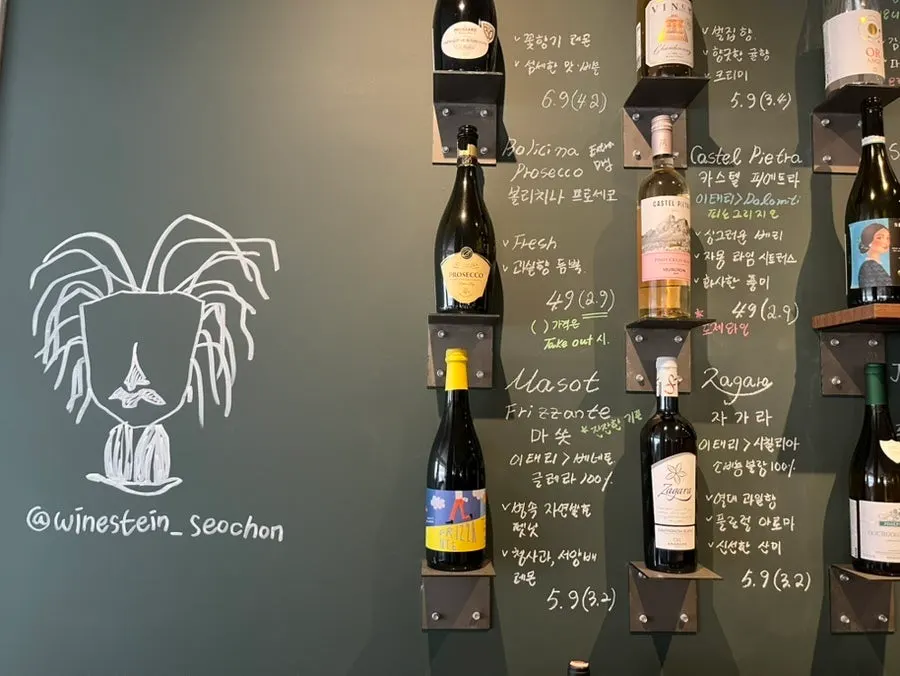 @winestein_seochon
✓ 꽃향기 레몬
✓ 섬세한 맛·버블
6.9(4.2)
Bolicina
Prosecco
볼리치나 프로세코
✓ Fresh
✓ 과일향 듬뿍
4.9(2.9)
( ) 가격은
Take out 시.
Masot
Frizzante
마쏫 *잔잔한 기포
이태리>베네토
글레라 100%
✓ 병속 자연발효
펫낫
✓ 청사과, 서양배
레몬
5.9(3.2)
향긋한 귤향
✓ 크리미
5.9(3.4)
Castel Pietra
카스텔 피에트라
이태리>Dolomiti
피노그리지오
✓ 싱그러운 베리
✓ 자몽 라임 시트러스
✓ 화사한 풍미
4.9(2.9)
*로제와인
Zagara
자가라
이태리>시칠리아
소비뇽블랑 100%
✓ 열대 과일향
✓ 플로럴 아로마
✓ 신선한 산미
5.9(3.2)
PROSECCO
CASTEL PIETRA
Zagara
Chardonnay